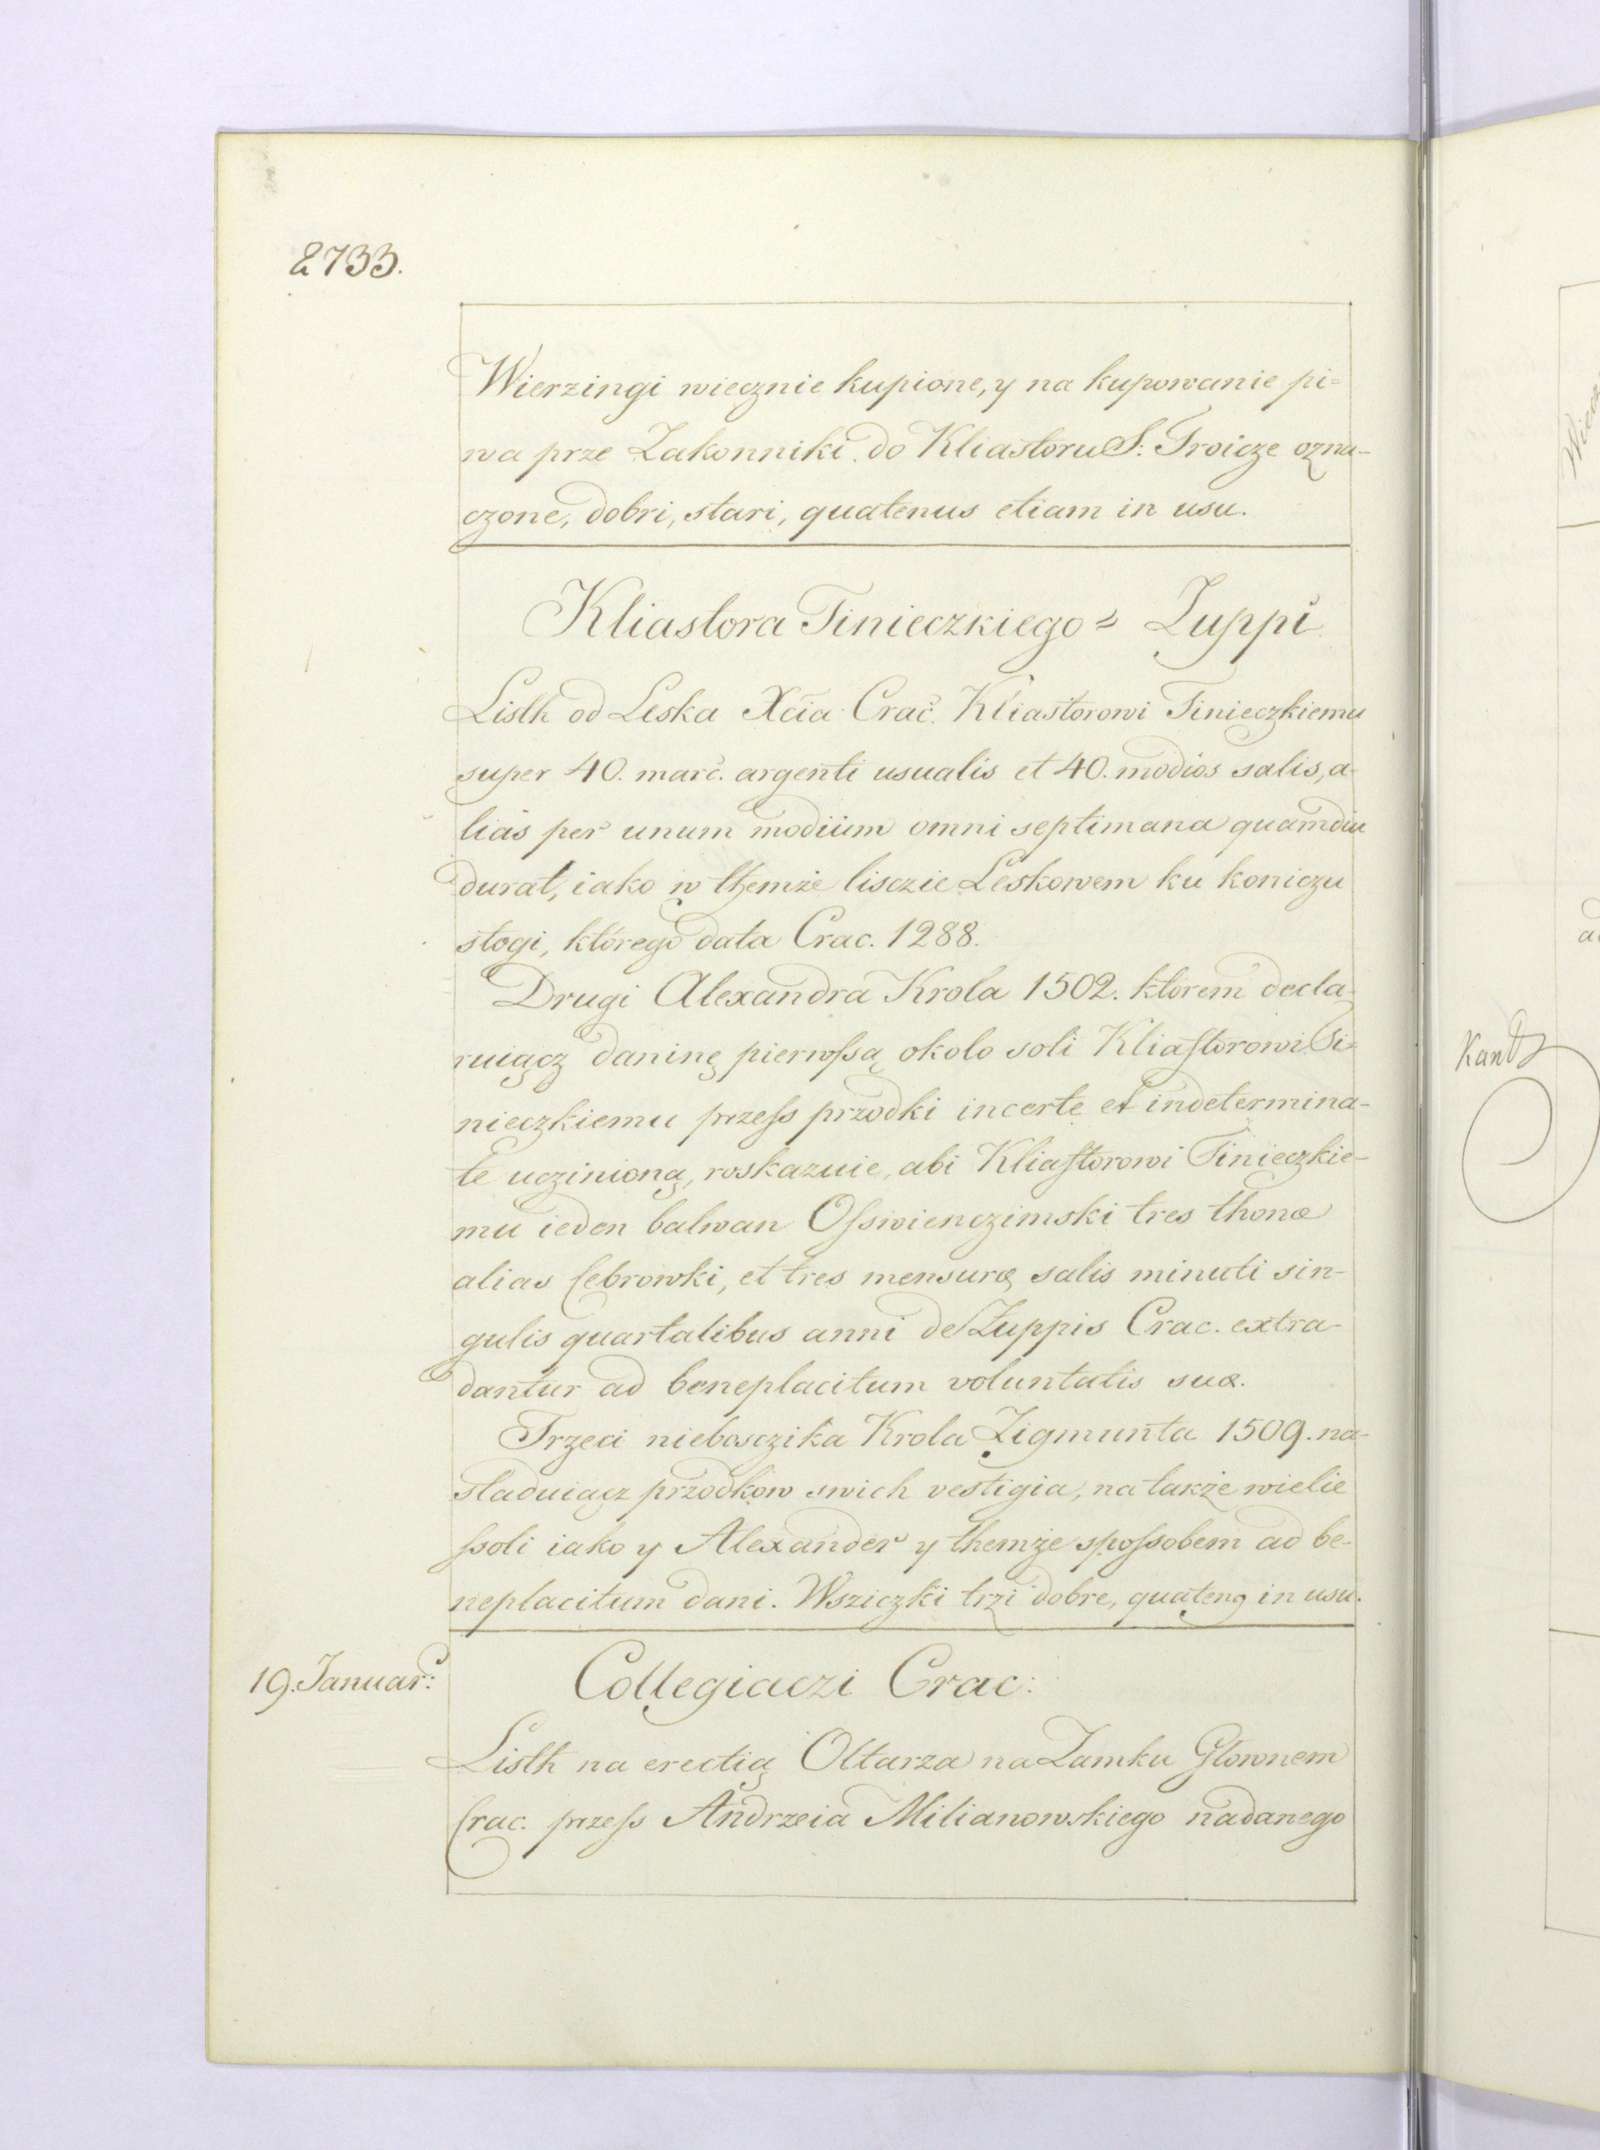 2733.
Wierzingi wiecznie kupione, y na kupowanie pi=
wa prze Zakonniki do Kliastoru S: Troicze ozna-
czone, dobri, stari, quatenus etiam in usu.
Kliastora Tinieczkiego = Zuppi
Listh od Leska Xcia Crac. Kliastorowi Tinieczkiemu
super 40. marc. argenti usualis et 40. modios salis, a-
lias per unum modium omni septimana quamdiu
durat, iako w themże lisczie Leskowem ku koniczu
stogi, którego data Crac. 1288.
Drugi Alexandra Krola 1502. ktorem decla-
ruiącz daninę pierwſsą okolo soli Kliaſtorowi Ti-
nieczkiemu przeſs przodki incerte et indetermina-
te uczinioną, roskazuie, abi Kliaſtorowi Tinieczkie-
mu ieden balwan Oſswienczimski tres thonæ
alias Cebrowki, et tres mensuræ salis minuti sin-
gulis quartalibus anni de Zuppis Crac. extra-
dantur ad beneplacitum voluntatis suæ.
Trzeci nieboszczika Krola Zigmunta 1509. na-
sladuiącz przodkow swich vestigia, na także wielie
ſsoli iako y Alexander y themże spoſsobem ad be-
neplacitum dani. Wsziczki trzi dobre, quateng in usu.
19. Januar:
Collegiaczi Crac:
Listh na erectią Oltarza na Zamku Glownem
Crac. przeſs Andrzeia Milianowskiego nadanego
Kant